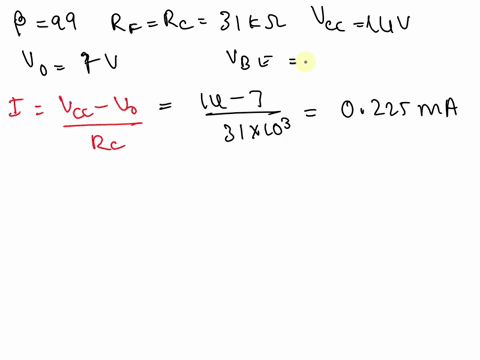 β = 99 R_F = R_C = 31 kΩ V_CC = 14V
V_0 = 7 V V_BE =
I = (V_CC - V_0) / R_C = (14 - 7) / (31 × 10^3) = 0.225 mA